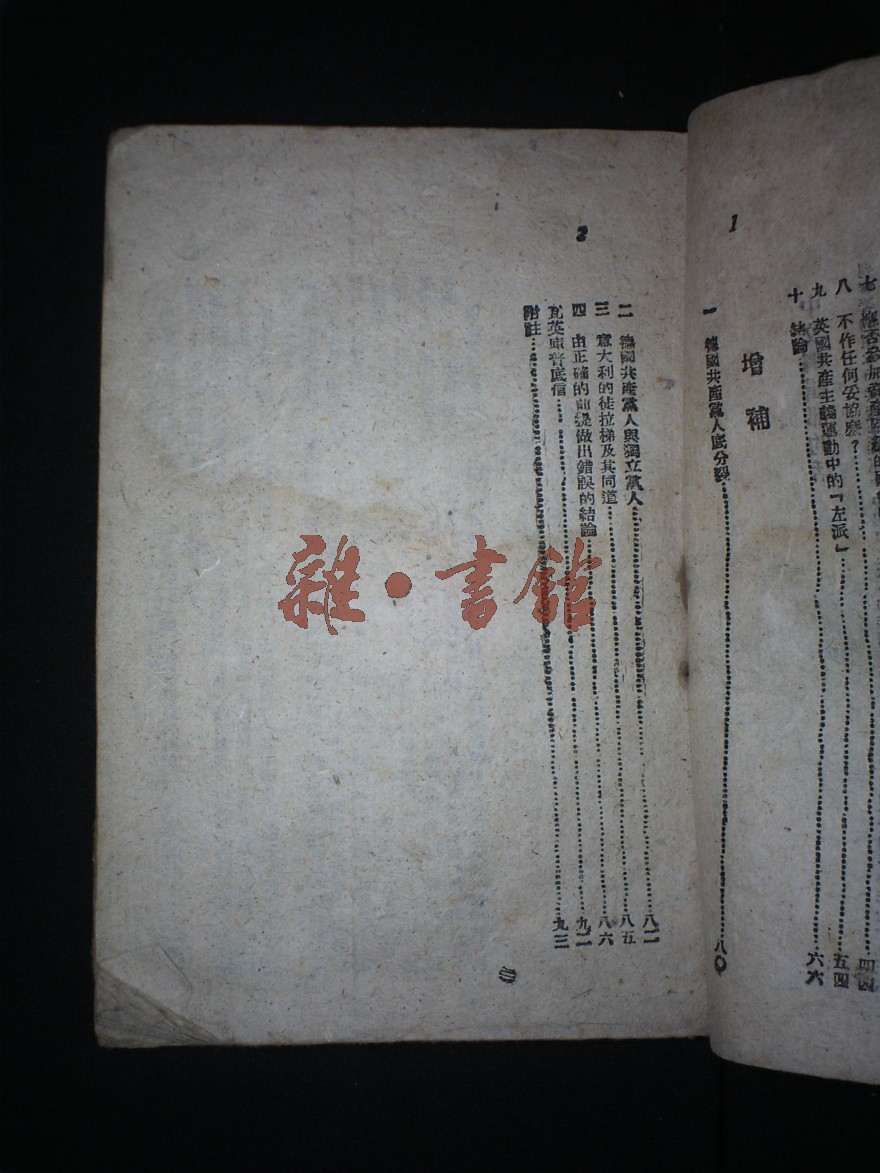 1
七 應否參加資產階級的國
八 不作任何妥協麽？……四四
九 英國共產主義運動中的「左派」……五四
十 結論……六六
增補
一 德國共產黨人底分裂……八〇
2
二 德國共產黨人與獨立黨人……八二
三 意大利的徒拉梯及其同道……八五
四 由正確的前提做出錯誤的結論……八六
瓦英庫普底信……九二
附註……九三
雜·書館